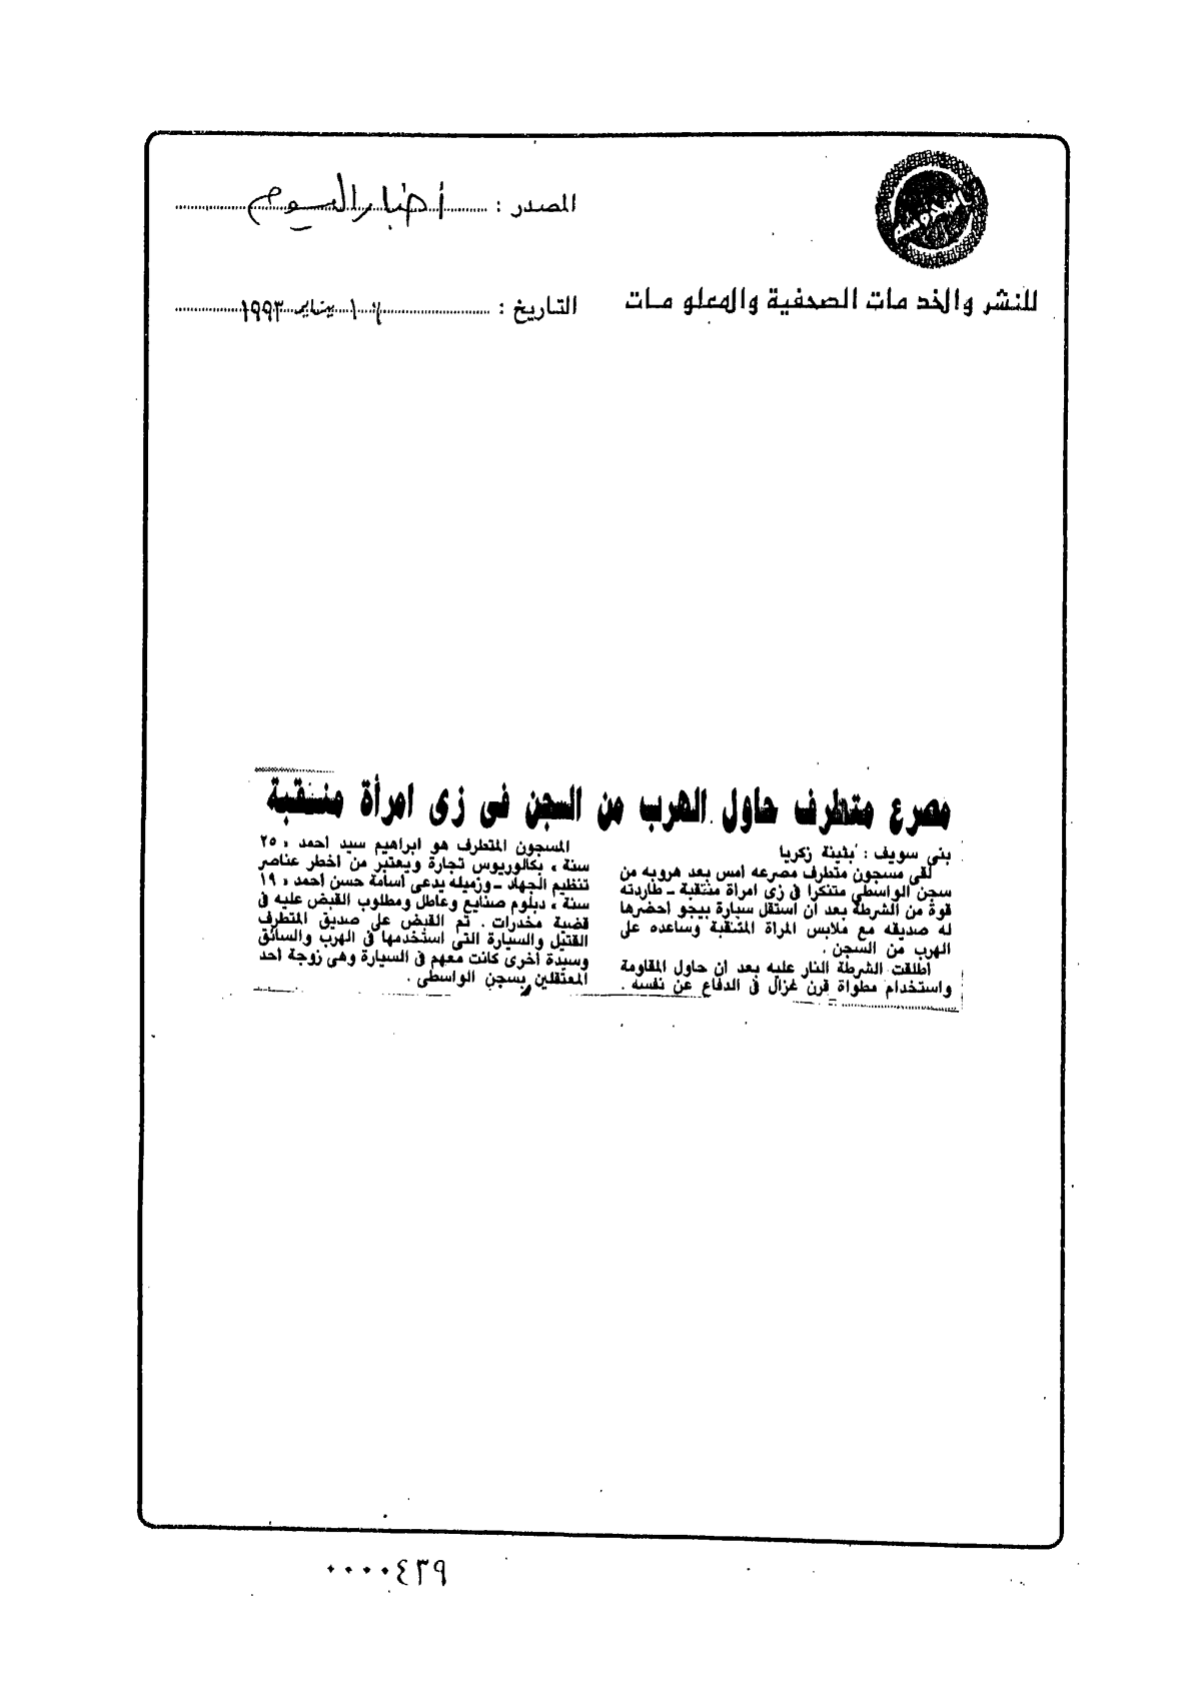 المصدر : أخبار اليوم
للنشر والخدمات الصحفية والمعلومات
التاريخ : يناير ١٩٩٣
مصرع متطرف حاول الهرب من السجن فى زى امرأة منتقبة
بنى سويف : بثينة زكريا
لقى مسجون متطرف مصرعه أمس بعد هروبه من
سجن الواسطى متنكرا فى زى امرأة منتقبة - طاردته
قوة من الشرطة بعد أن استقل سيارة بيجو احضرها
له صديقه مع ملابس المرأة المنتقبة وساعده على
الهرب من السجن .
أطلقت الشرطة النار عليه بعد أن حاول المقاومة
واستخدام مطواة قرن غزال فى الدفاع عن نفسه .
المسجون المتطرف هو ابراهيم سيد أحمد « ٢٥
سنة » بكالوريوس تجارة ويعتبر من اخطر عناصر
تنظيم الجهاد - وزميله يدعى أسامة حسن أحمد « ١٩
سنة » دبلوم صنايع وعاطل ومطلوب القبض عليه فى
قضية مخدرات . تم القبض على صديق المتطرف
القتيل والسيارة التى استخدمها فى الهرب والسائق
وسيدة أخرى كانت معهم فى السيارة وهى زوجة أحد
المعتقلين بسجن الواسطى .
٠٠٠٠٤٣٩